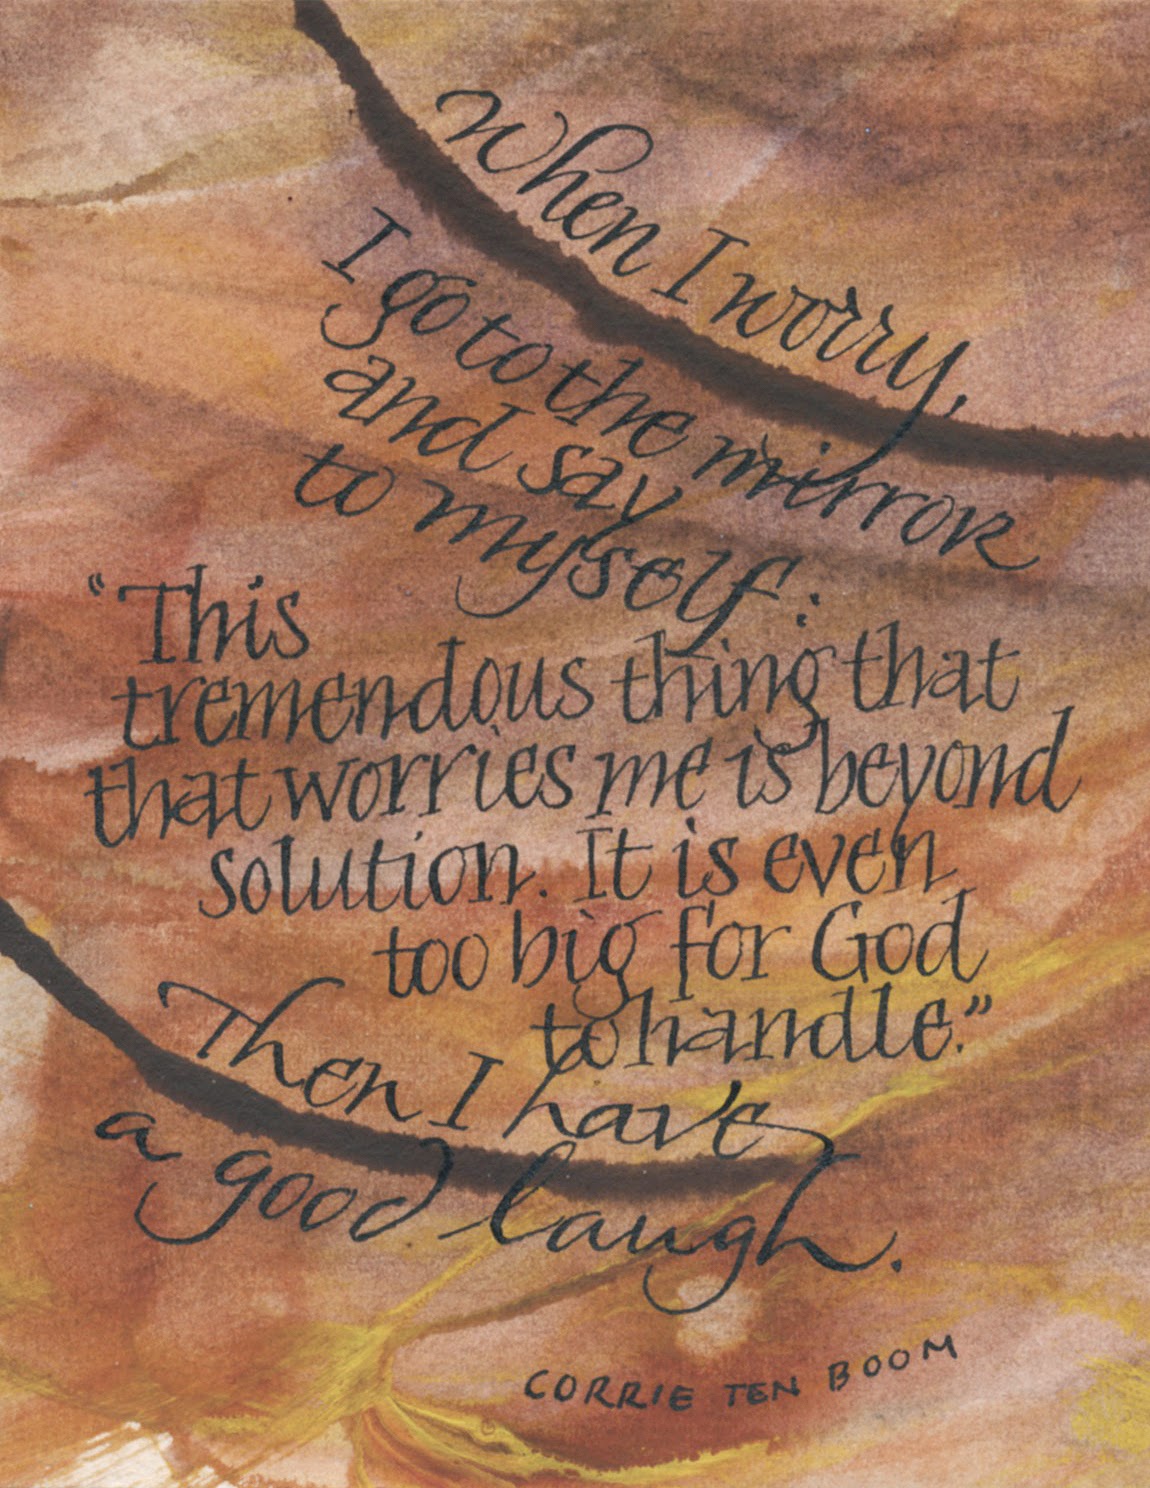 When I worry,
I go to the mirror
and say
to myself:
"This
tremendous thing that
that worries me is beyond
solution. It is even
too big for God
to handle."
Then I have
a good laugh.
CORRIE TEN BOOM